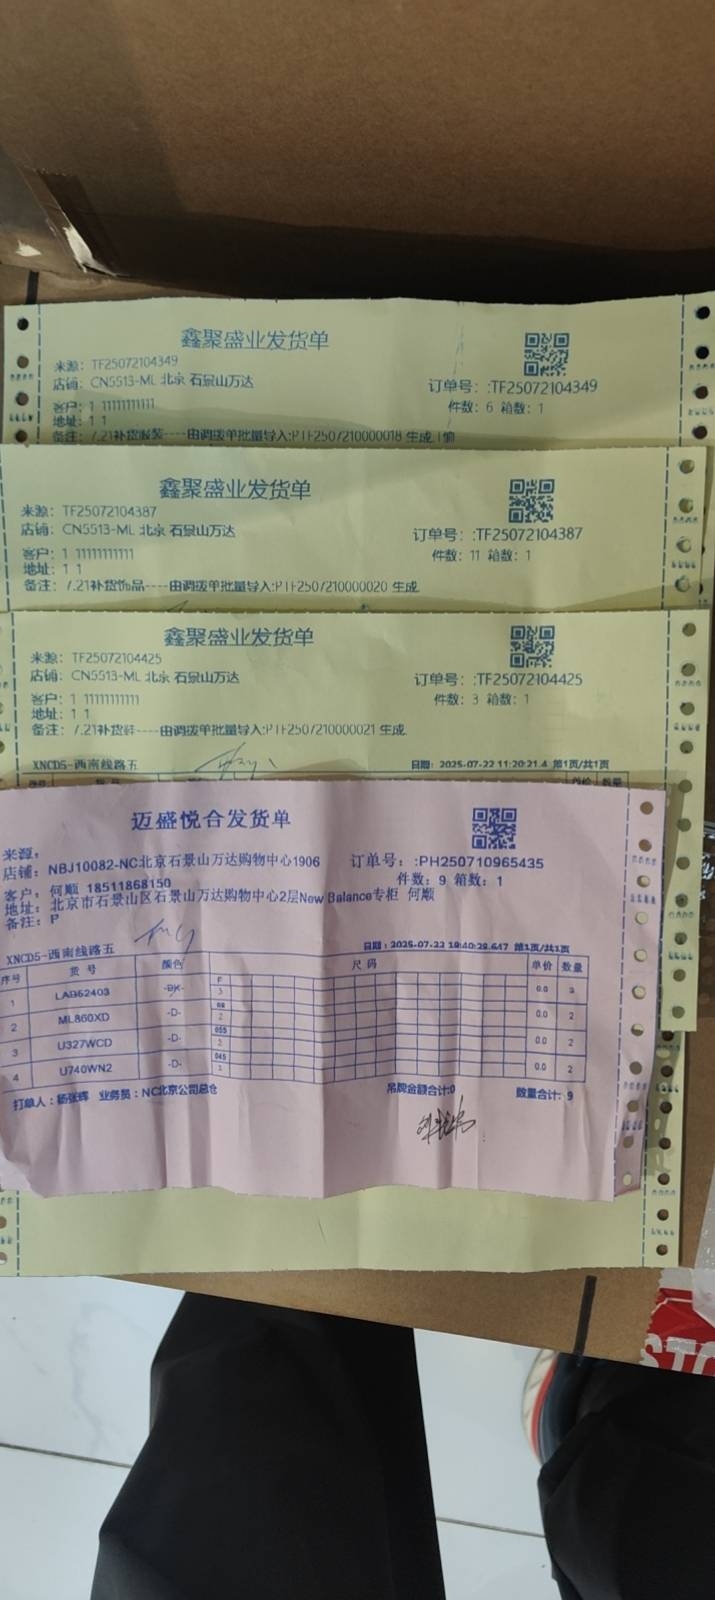 鑫聚盛业发货单
来源：TF25072104349
店铺：CN5513-ML 北京 石景山万达
订单号：:TF25072104349
客户：1 11111111111
件数：6 箱数：1
地址：1 1
备注：7.21补货服装----由调拨单批量导入:PTF2507210000018 生成,
鑫聚盛业发货单
来源：TF25072104387
店铺：CN5513-ML 北京 石景山万达
订单号：:TF25072104387
客户：1 11111111111
件数：11 箱数：1
地址：1 1
备注：7.21补货饰品----由调拨单批量导入:PTF2507210000020 生成
鑫聚盛业发货单
来源：TF25072104425
店铺：CN5513-ML 北京 石景山万达
订单号：:TF25072104425
客户：1 11111111111
件数：3 箱数：1
地址：1 1
备注：7.21补货鞋----由调拨单批量导入:PTF2507210000021 生成
XNCD5-西南线路五
日期：2025-07-22 11:20:21.4 第1页/共1页
迈盛悦合发货单
来源：
店铺：NBJ10082-NC北京石景山万达购物中心1906
订单号：:PH250710965435
客户：何顺 18511868150
件数：9 箱数：1
地址：北京市石景山区石景山万达购物中心2层New Balance专柜 何顺
备注：P
XNCD5-西南线路五
日期：2025-07-22 18:40:28.647 第1页/共1页
序号 货号 颜色 尺码 单价 数量
1 LAB62403 -BK- F 3 0.0 3
2 ML860XD -D- 2 0.0 2
3 U327WCD -D- 055 2 0.0 2
4 U740WN2 -D- 045 0.0 2
打单人：杨张辉 业务员：NC北京公司总仓
吊牌金额合计:0
数量合计：9